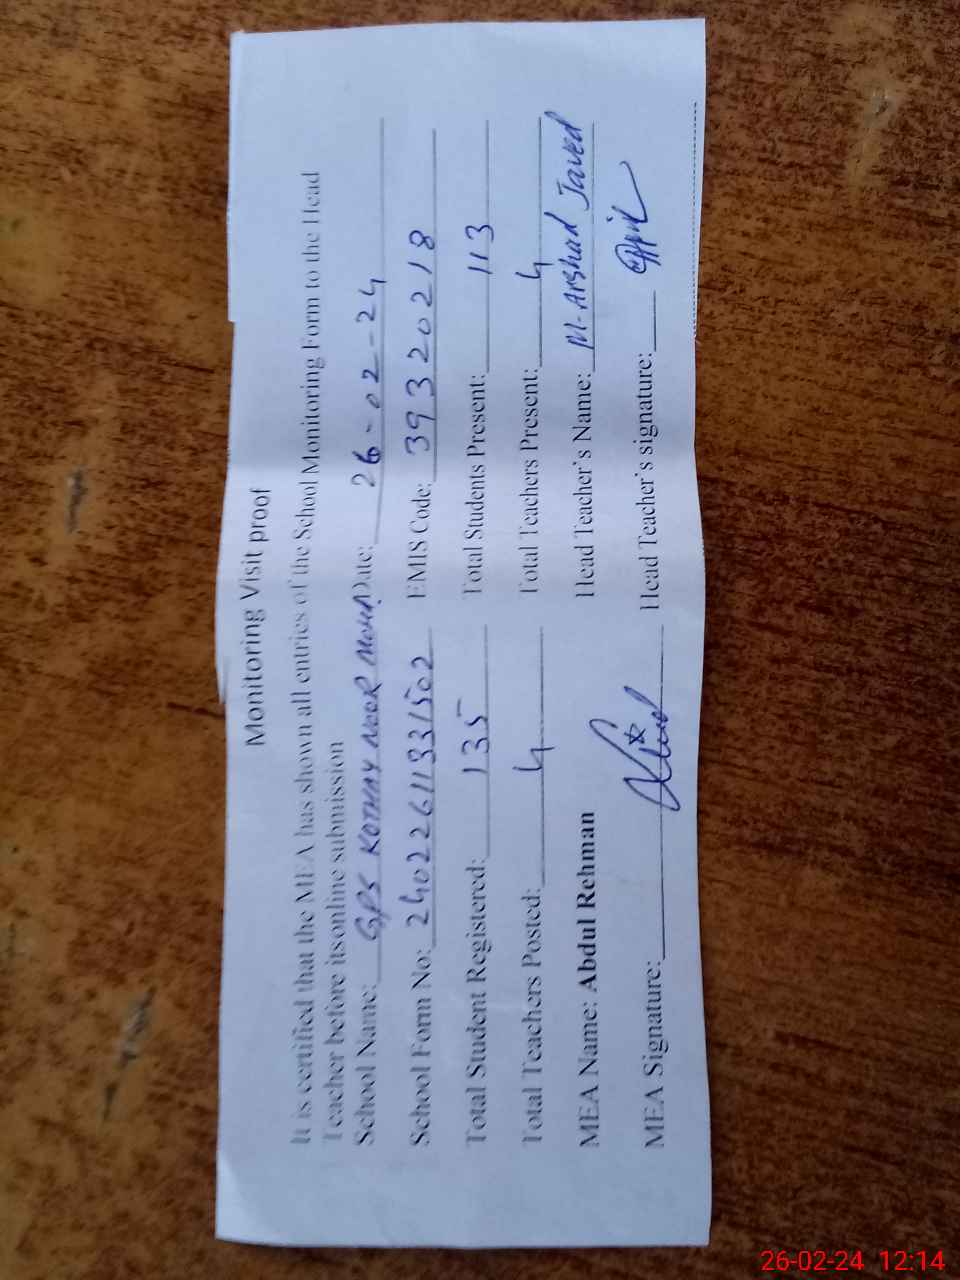 Monitoring Visit proof
It is certified that the MEA has shown all entries of the School Monitoring Form to the Head
Teacher before itsonline submission
School Name: GPS KOTHAY NOOR Date: 26-02-24
School Form No: 24022611331502 EMIS Code: 39320218
Total Student Registered: 135 Total Students Present: 113
Total Teachers Posted: 4 Total Teachers Present: 4
MEA Name: Abdul Rehman Head Teacher's Name: M. Arshad Javed
MEA Signature: Head Teacher's signature:
26-02-24 12:14